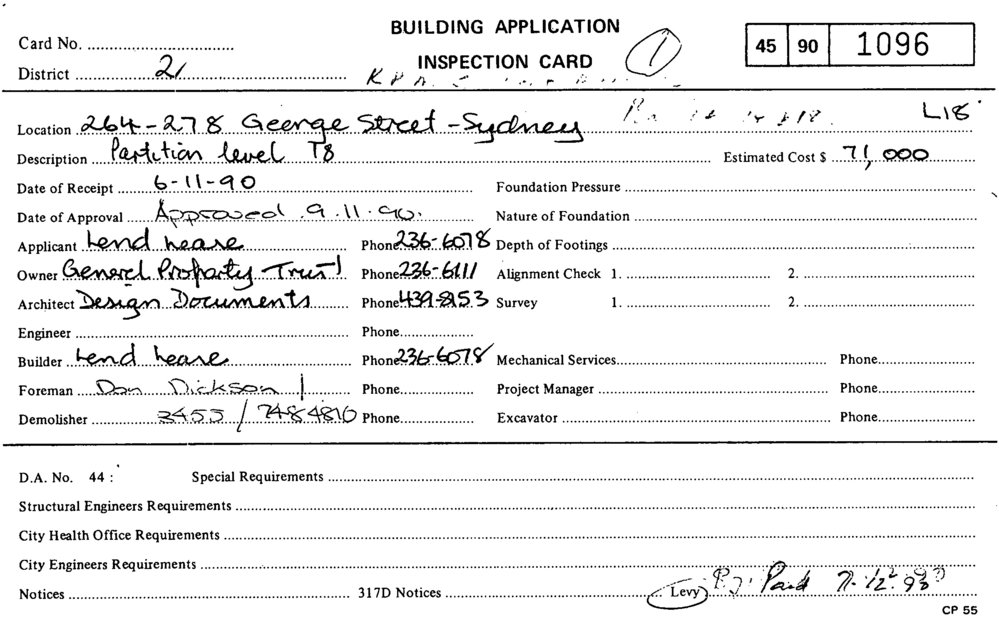 BUILDING APPLICATION
INSPECTION CARD
1
45 90 1096
Card No.
District 21
L18
Location 264-278 George Street - Sydney
Description Partition level T8
Estimated Cost $ 71,000
Date of Receipt 6-11-90
Foundation Pressure
Date of Approval Approved 9.11.90.
Nature of Foundation
Applicant Lend Lease Phone 236-6078 Depth of Footings
Owner General Property Trust Phone 236-6111 Alignment Check 1. 2.
Architect Design Documents Phone 439-8153 Survey 1. 2.
Engineer Phone
Builder Lend Lease Phone 236-6078 Mechanical Services Phone
Foreman Don Dickson Phone Project Manager Phone
Demolisher 3455 / 7484810 Phone Excavator Phone
D.A. No. 44 : Special Requirements
Structural Engineers Requirements
City Health Office Requirements
City Engineers Requirements
Notices 317D Notices Levy Paid
CP 55